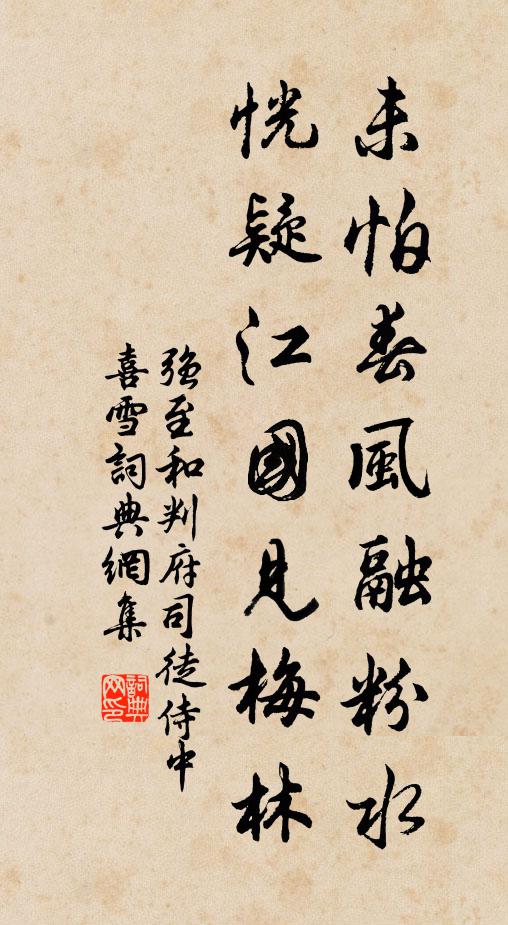 未怕春風融粉水
恍疑江國見梅林
強至和判府司徒侍中
喜雪詞典網集
詞典
網印